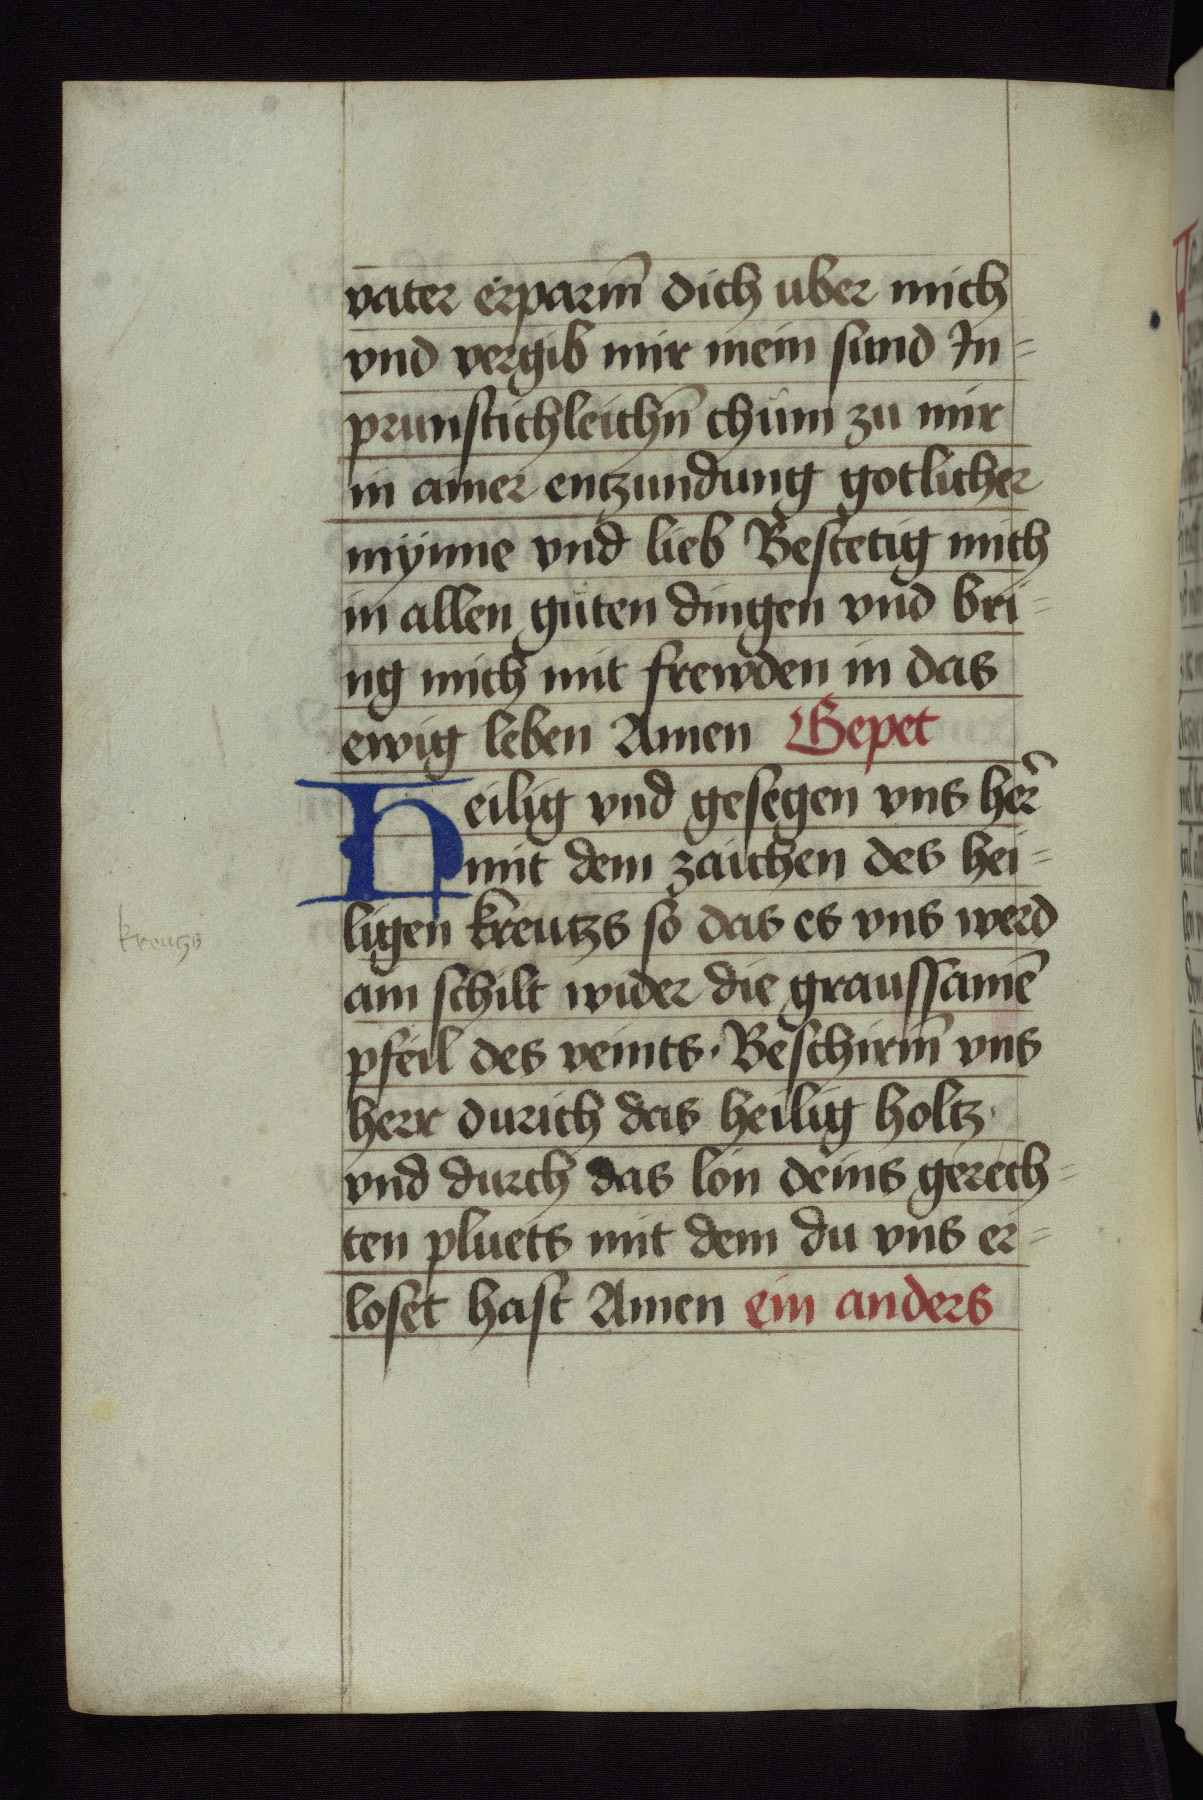 vater erparm̄ dich uber mich
vnd vergib mir mein sund In=
prunstichleichn̄ chüm zu mir
in ainer entzundung gotlicher
mynne vnd lieb Bestetig mich
in allen güten dingen vnd bri=
ng mich mit frewden in das
ewig leben Amen Gepet
Heilig vnd gesegen vns her̄
mit dem zaichen des hei=
ligen kreutzs so das es vns werd
kreutzs
ain schilt wider die graussamē
pfeil des veints · Beschirm̄ vns
herr durich das heilig holtz ·
vnd durch das lon deins gerech=
ten pluets mit dem du vns er=
loset hast Amen ein anders